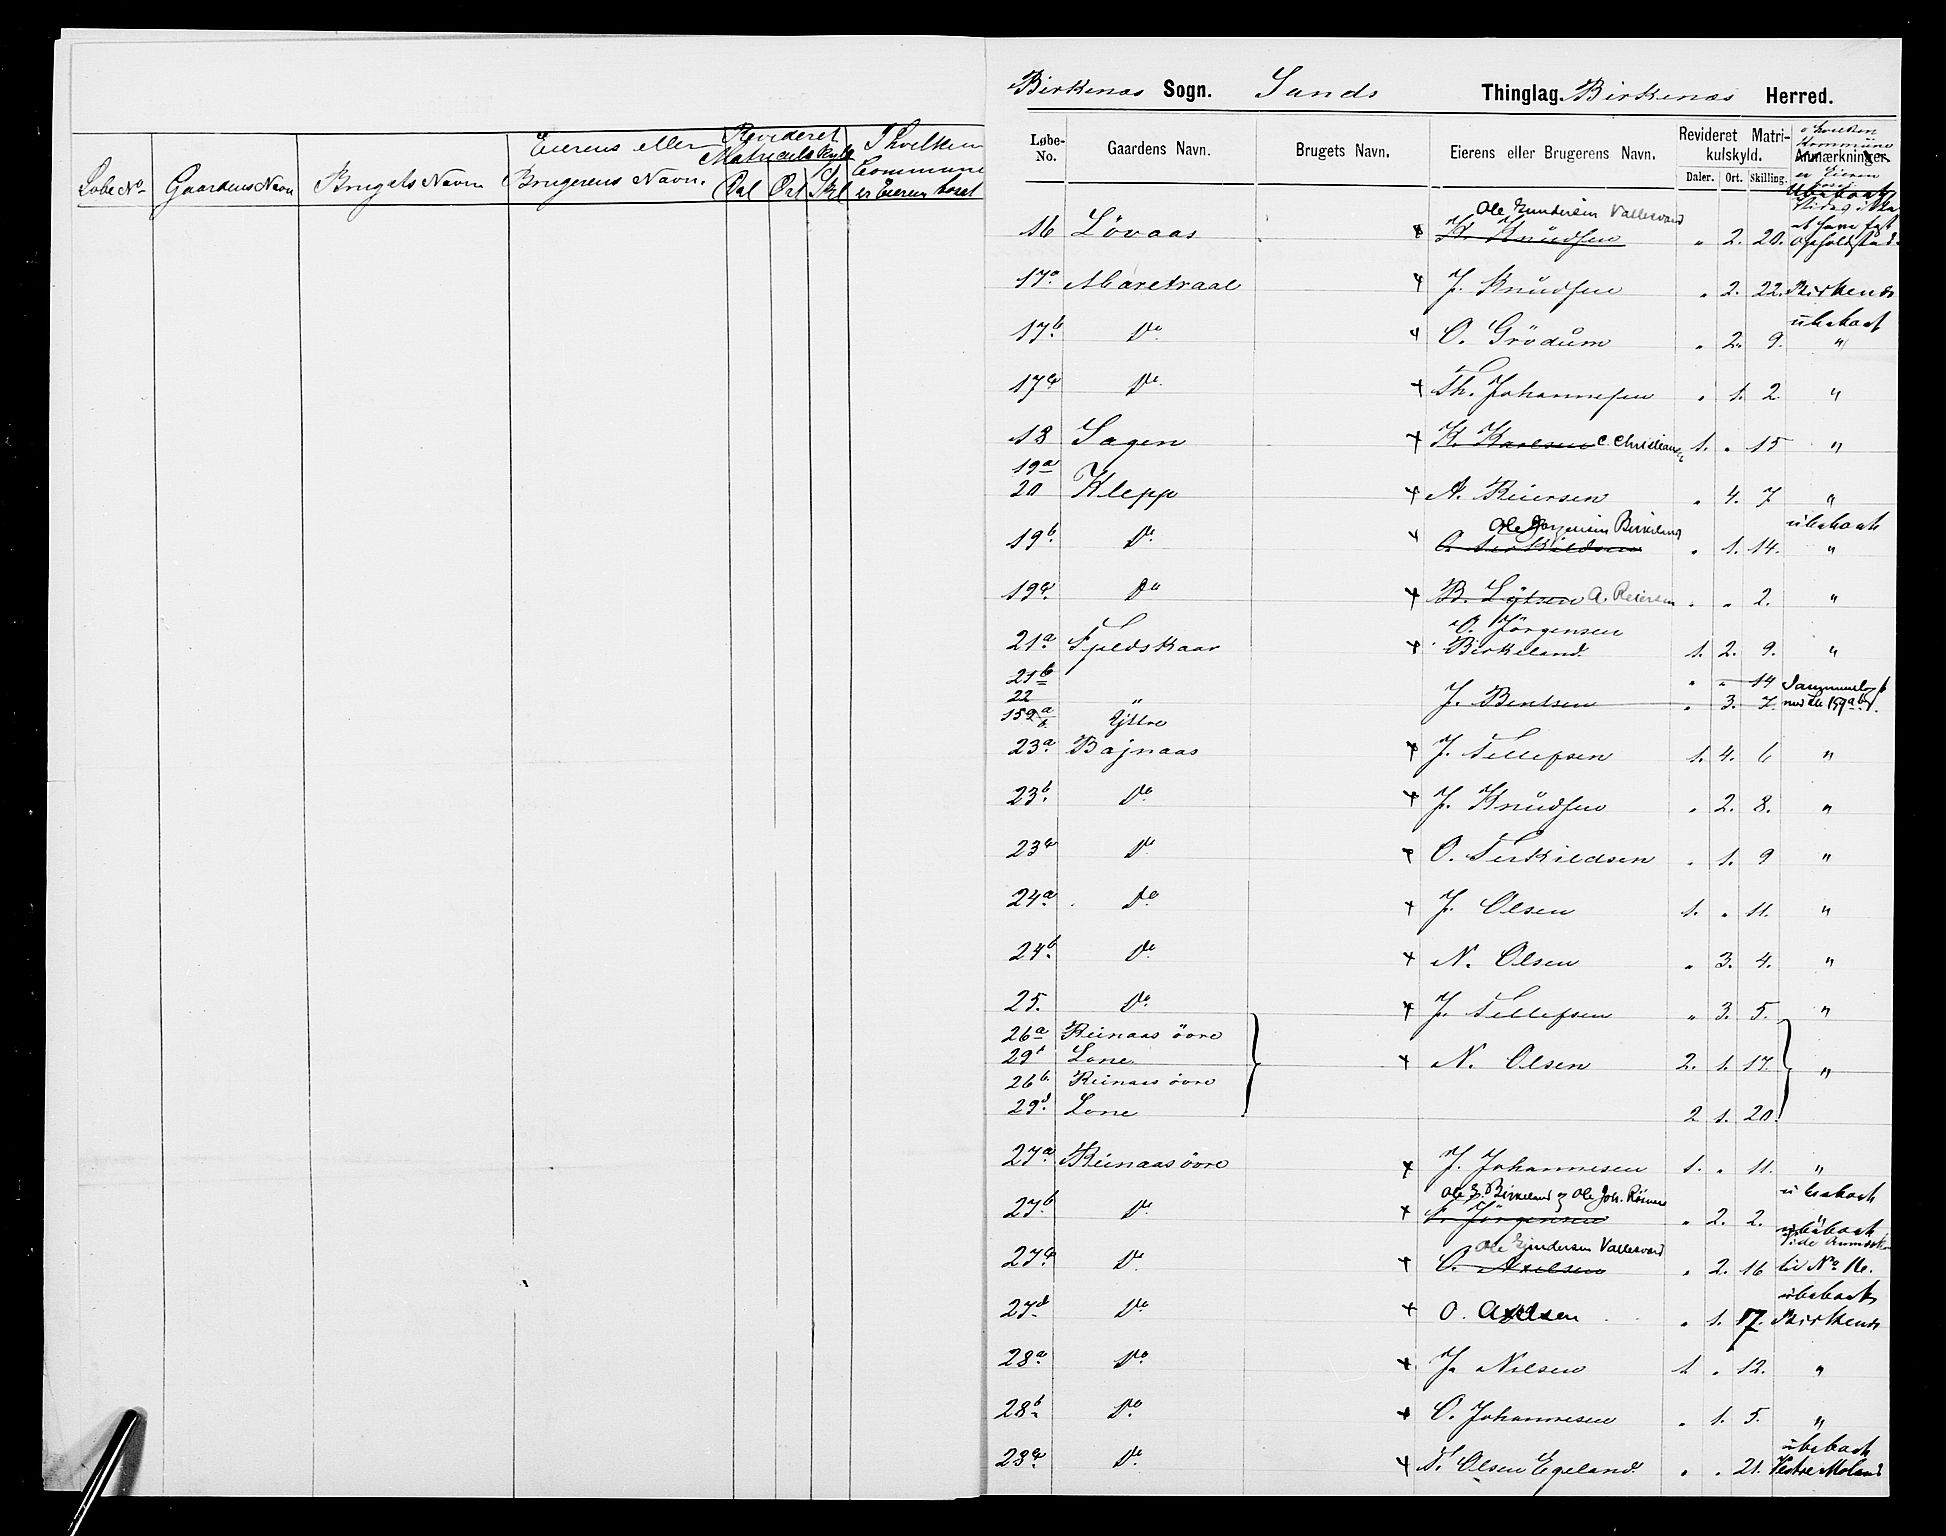 Løbe No
Gaardens Navn
Brugets Navn
Eierens eller
Brugerens Navn.
Revideret
Matriculskyld
Dal Ort Skl
I hvilken
Commune
er Eieren boset
Birkenæs Sogn. Sands Thinglag Birkenæs Herred.
Løbe-No. Gaardens Navn. Brugets Navn. Eierens eller Brugerens Navn. Revideret Matrikulskyld. Anmærkninger.
Daler. Ort. Skilling.
i hvilken
Kommune
er Eieren
Ole Gundersen Vallesverd
16 Lövaas K. Knudsen " 2. 20. Opholdssted
17a Maretraal J. Knudsen " 2. 22. Birkenæs
ubeboet
17b Do O. Grödum " 2. 9. "
17c Do Th. Johannesen " 1. 2. "
18 Sagen K. Karlsen C. Christiansen 1. " 15 "
19a
20 Klepp A. Reiersen " 4. 7 "
Ole Jørgensen Birkeland ubeboet
19b Do O. Terkildsen " 1. 14. "
19c Do B. A. Reiersen " " 2. "
O. Jörgensen
21a Fjeldskaar Birkeland 1. 2. 9. "
21b " " 14
22 " J. Bentsen " 3. 7. med No 159 a b
159 a/b Ytre
23a Bajnaas J. Tellefsen 1. 4. 6 "
23b Do J. Knudsen " 2. 8. "
23c Do O. Terkildsen " 1. 9 "
24a Do J. Olsen 1. " 11. "
24b Do N. Olsen " 3. 4. "
25. Do J. Tellefsen " 3. 5. "
26a Reinaas övre
29 Lone N. Olsen 2. 1. 17. "
26b Reinaas övre
29d Lone 2 1. 20.
27a Reinaas övre J. Johannesen 1. " 11. "
Ole J. Birkeland og Ole Joh. ubeboet
27b Do Jörgensen " 2. 2. "
ubeboet
Ole Gundersen Vallesverd
27c Do O. Axelsen " 2. 16 til No 16.
ubeboet
27d Do O. Axelsen " 1. 17. Birkenæs
28a Do J. Nilsen 1 " 12. "
28b Do O. Johannesen " 1. 5. "
ubeboet
28c Do T. Olsen Egeland " " 21. Vestre Moland